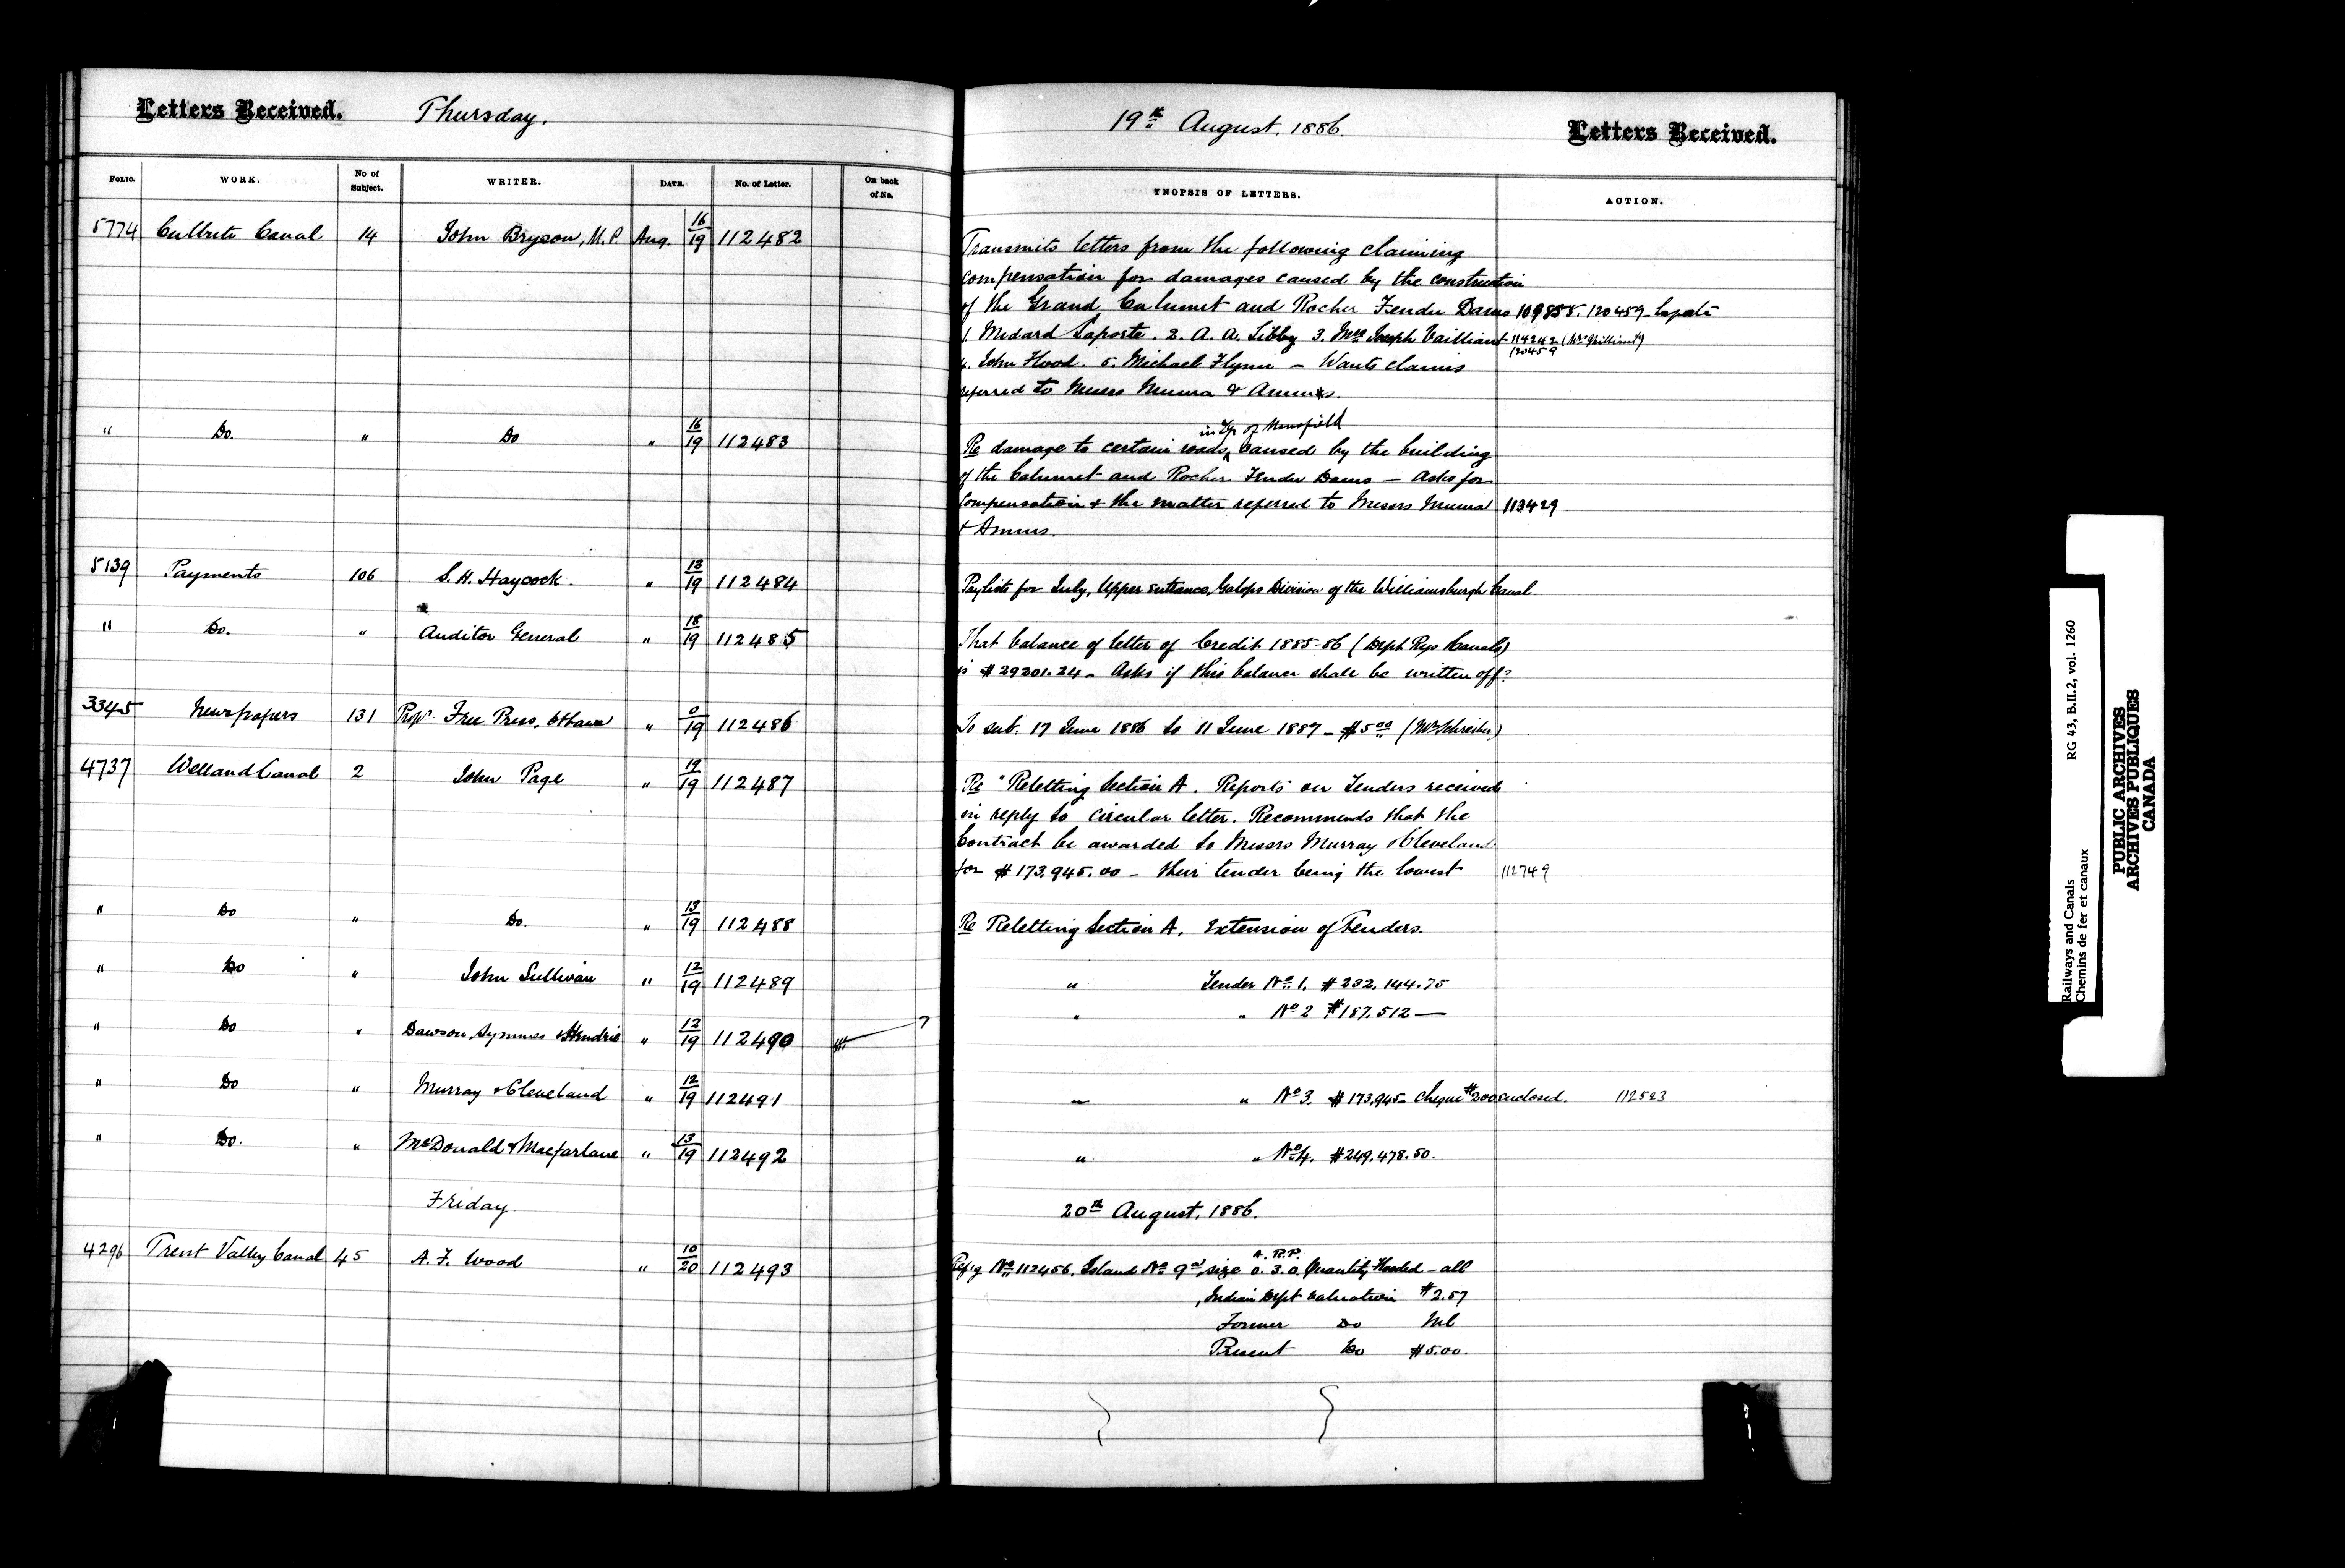 Letters Received. Thursday. 19th August. 1886. Letters Received.
FOLIO. WORK. No of Subject. WRITER. DATE. No. of Letter. On back of No. YNOPSIS OF LETTERS. ACTION.
5774 Culbute Canal 14 John Bryson, M.P. Aug. 16/19 112482
Transmits letters from the following claiming
compensation for damages caused by the construction
of the Grand Calumet and Rocher Fendu Dams 109855. 120459
1. Medard Laporte. 2. A. A. Libby 3. Mrs Joseph Vailliant 114242
120459
4. John Flood. 5. Michael Flynn — Wants claims
referred to Messrs
" Do. " Do " 16/19 112483
in Tp of Mansfield
Re damage to certain roads, caused by the building
of the Calumet and Rocher Fendu Dams — Asks for
Compensation & the matter referred to Messrs 113429
5139 Payments 106 S. H. Haycock. " 13/19 112484 Paylists for July, Upper entrance, Galops Division of the Williamsburgh Canal.
" Do. " Auditor General " 18/19 112485 That balance of letter of Credit 1885-86 (Dept Rys Canals)
is $29201.24 — Asks if this balance shall be written off?
3345 Newspapers 131 Propr. Free Press, Ottawa " 0/19 112486 To sub. 17 June 1886 to 11 June 1887 — $5.00 (Mr Schreiber)
4737 Welland Canal 2 John Page " 19/19 112487 Re "Reletting Section A. Reports on Tenders received
in reply to circular letter. Recommends that the
Contract be awarded to Messrs Murray & Cleveland
for $173,945.00 — their tender being the lowest 112749
" Do " Do. " 13/19 112488 Re Reletting Section A. Extension of Tenders.
" Do " John Sullivan " 12/19 112489 " Tender No. 1. $232,144.75
" Do " Dawson, Symmes & Hendrie " 12/19 112490 " " No 2 $187,512 —
" Do " Murray & Cleveland " 12/19 112491 " " No 3. $173,945 — Cheque $200 enclosed. 112523
" Do. " McDonald & Macfarlane " 13/19 112492 " " No 4. $249,478.50.
Friday 20th August, 1886.
4296 Trent Valley Canal 45 A. F. Wood " 10/20 112493
A. R. P.
Refg No 112456. Island No 9, size 0. 3. 0. Quantity flooded — all
Indian Dept valuation $2.57
Former Do Nil
Present Do $5.00.
Railways and Canals RG 43, B.III.2, vol. 1260
Chemins de fer et canaux
PUBLIC ARCHIVES
ARCHIVES PUBLIQUES
CANADA